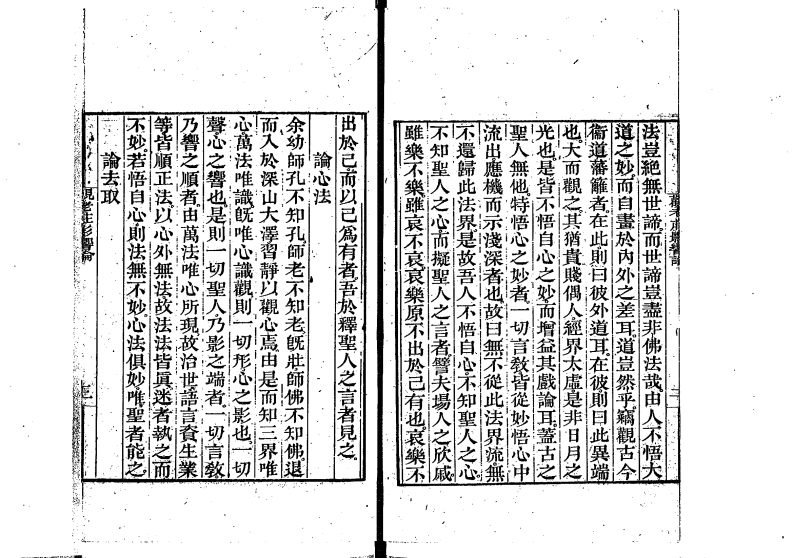 法豈絕無世諦。而世諦豈盡非佛法哉。由人不悟大
道之妙。而自畫於內外之差耳。道豈然乎。竊觀古今
衞道藩籬者。在此則曰彼外道耳。在彼則曰此異端
也。大而觀之。其猶貴賤偶人經界太虛。是非日月之
光也。是皆不悟自心之妙。而增益其戲論耳。蓋古之
聖人無他。特悟心之妙者。一切言教。皆從妙悟心中
流出。應機而示淺深者也。故曰無不從此法界流。無
不還歸此法界。是故吾人不悟自心。不知聖人之心。
不知聖人之心。而擬聖人之言者。譬夫場人之欣戚。
雖樂不樂。雖哀不哀。哀樂原不出於己有也。哀樂不
出於己。而以己爲有者。吾於釋聖人之言者見之。
論心法
余幼師孔不知孔。師老不知老。旣壯。師佛不知佛。退
而入於深山大澤。習靜以觀心焉。由是而知三界唯
心。萬法唯識。旣唯心識觀。則一切形。心之影也。一切
聲。心之響也。是則一切聖人。乃影之端者。一切言教。
乃響之順者。由萬法唯心所現。故治世語言資生業
等。皆順正法。以心外無法。故法法皆眞。迷者執之而
不妙。若悟自心。則法無不妙。心法俱妙。唯聖者能之。
論去取
觀老莊影響論